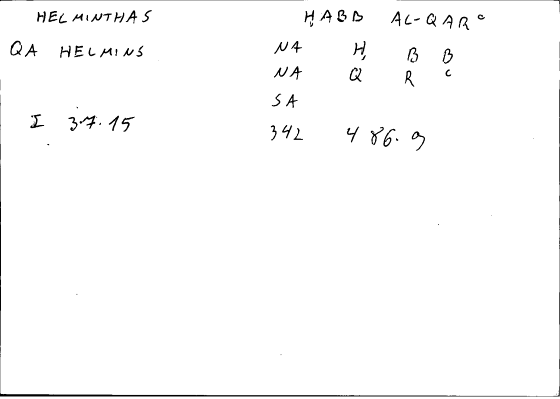 HELMINTHAS ḤABB AL-QARᶜ
QA HELMINS NA Ḥ B B
NA Q R ᶜ
SA
I 3.7.15 342 486.9